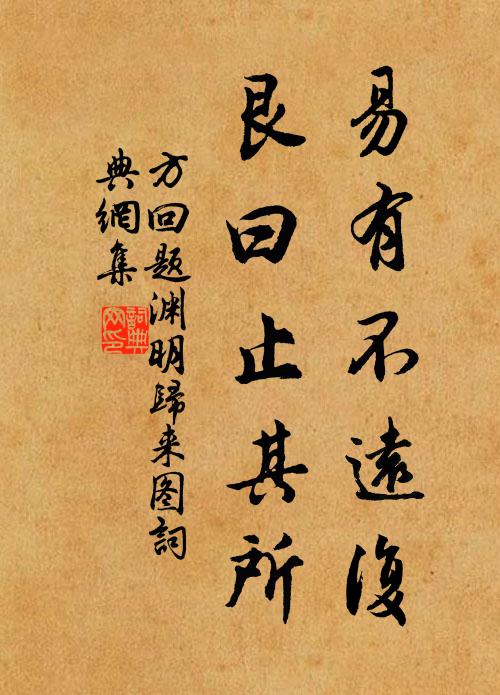 易有不遠復
艮曰止其所
方回題渊明歸来图詞
典網集
詞典網印